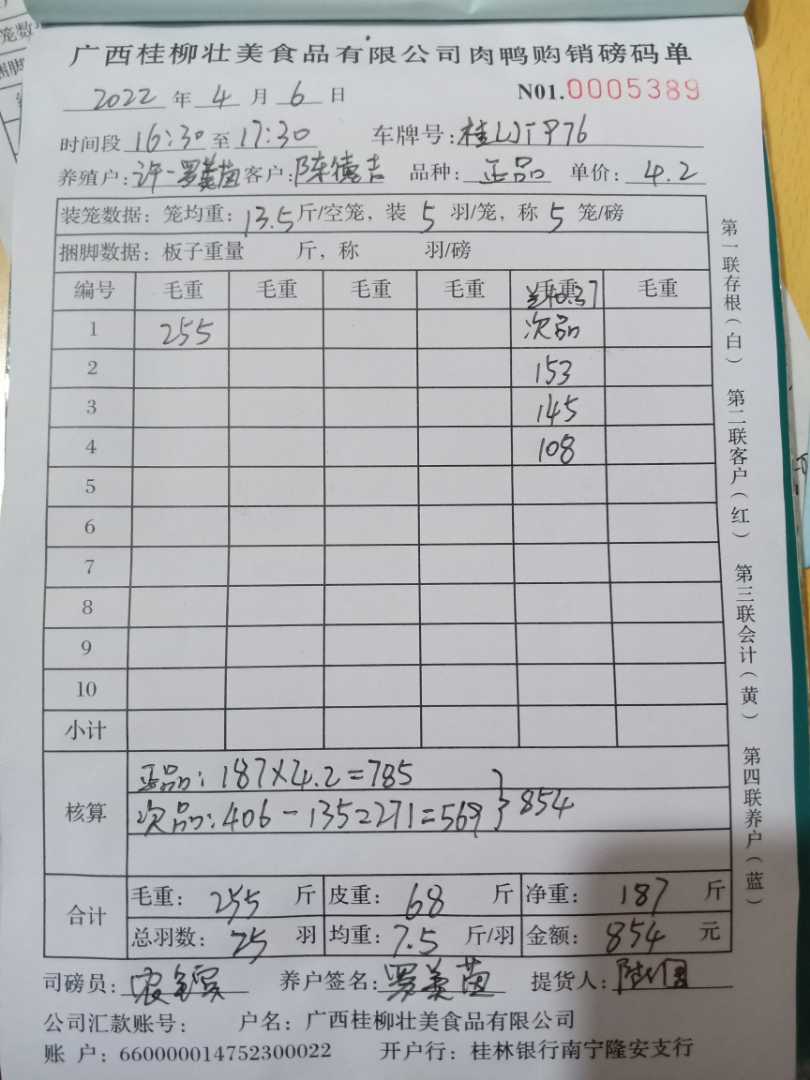 广西桂柳壮美食品有限公司肉鸭购销磅码单
2022 年 4 月 6 日 N01.0005389
时间段 16:30 至 17:30 车牌号:桂
养殖户: 许一罗美茵 客户: 陈德吉 品种: 正品 单价: 4.2
装笼数据: 笼均重: 13.5 斤/空笼, 装 5 羽/笼, 称 5 笼/磅
捆脚数据: 板子重量 斤, 称 羽/磅
编号 毛重 毛重 毛重 毛重 毛重 毛重
1 255 次品
2 153
3 145
4 108
5
6
7
8
9
10
小计
核算
正品: 187×4.2=785
次品: 406-135=271=569 } 854
合计
毛重: 255 斤 皮重: 68 斤 净重: 187 斤
总羽数: 25 羽 均重: 7.5 斤/羽 金额: 854 元
司磅员: 养户签名: 罗美茵 提货人:
公司汇款账号: 户名: 广西桂柳壮美食品有限公司
账 户: 660000014752300022 开户行: 桂林银行南宁隆安支行
第一联存根(白) 第二联客户(红) 第三联会计(黄) 第四联养户(蓝)